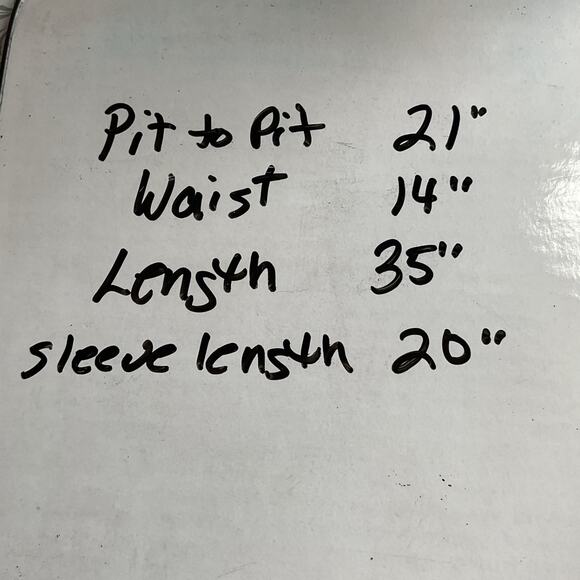 Pit to Pit 21"
Waist 14"
Length 35"
sleeve length 20"